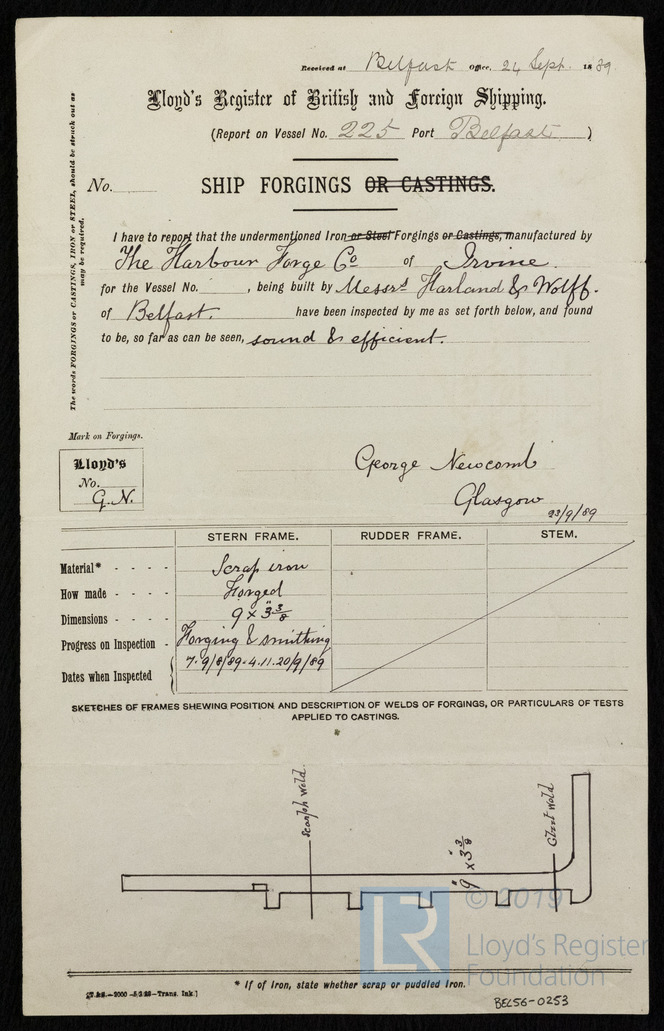 Received at Belfast Office, 24 Sept. 1889
Lloyd's Register of British and Foreign Shipping.
(Report on Vessel No. 225 Port Belfast )
No.
SHIP FORGINGS OR CASTINGS.
The words FORGINGS or CASTINGS, IRON or STEEL, should be struck out as may be required.
I have to report that the undermentioned Iron or Steel Forgings or Castings, manufactured by
The Harbour Forge Co of Irvine
for the Vessel No. , being built by Messrs Harland & Wolff.
of Belfast. have been inspected by me as set forth below, and found
to be, so far as can be seen, sound & efficient.
Mark on Forgings.
Lloyd's
No.
G.N.
George Newcomb
Glasgow
23/9/89
STERN FRAME. RUDDER FRAME. STEM.
Material* - - - - Scrap iron
How made - - - - Forged
Dimensions - - - - 9 x 3 3/8"
Progress on Inspection - Forging & smithing
Dates when Inspected 7.9/8/89.4.11.20/9/89
SKETCHES OF FRAMES SHEWING POSITION AND DESCRIPTION OF WELDS OF FORGINGS, OR PARTICULARS OF TESTS
APPLIED TO CASTINGS.
Scarph weld.
9" x 3 3/8"
weld
© 2019
LR
Lloyd's Register
Foundation
* If of Iron, state whether scrap or puddled Iron.
2000 Trans. Ink.]
BEL56-0253